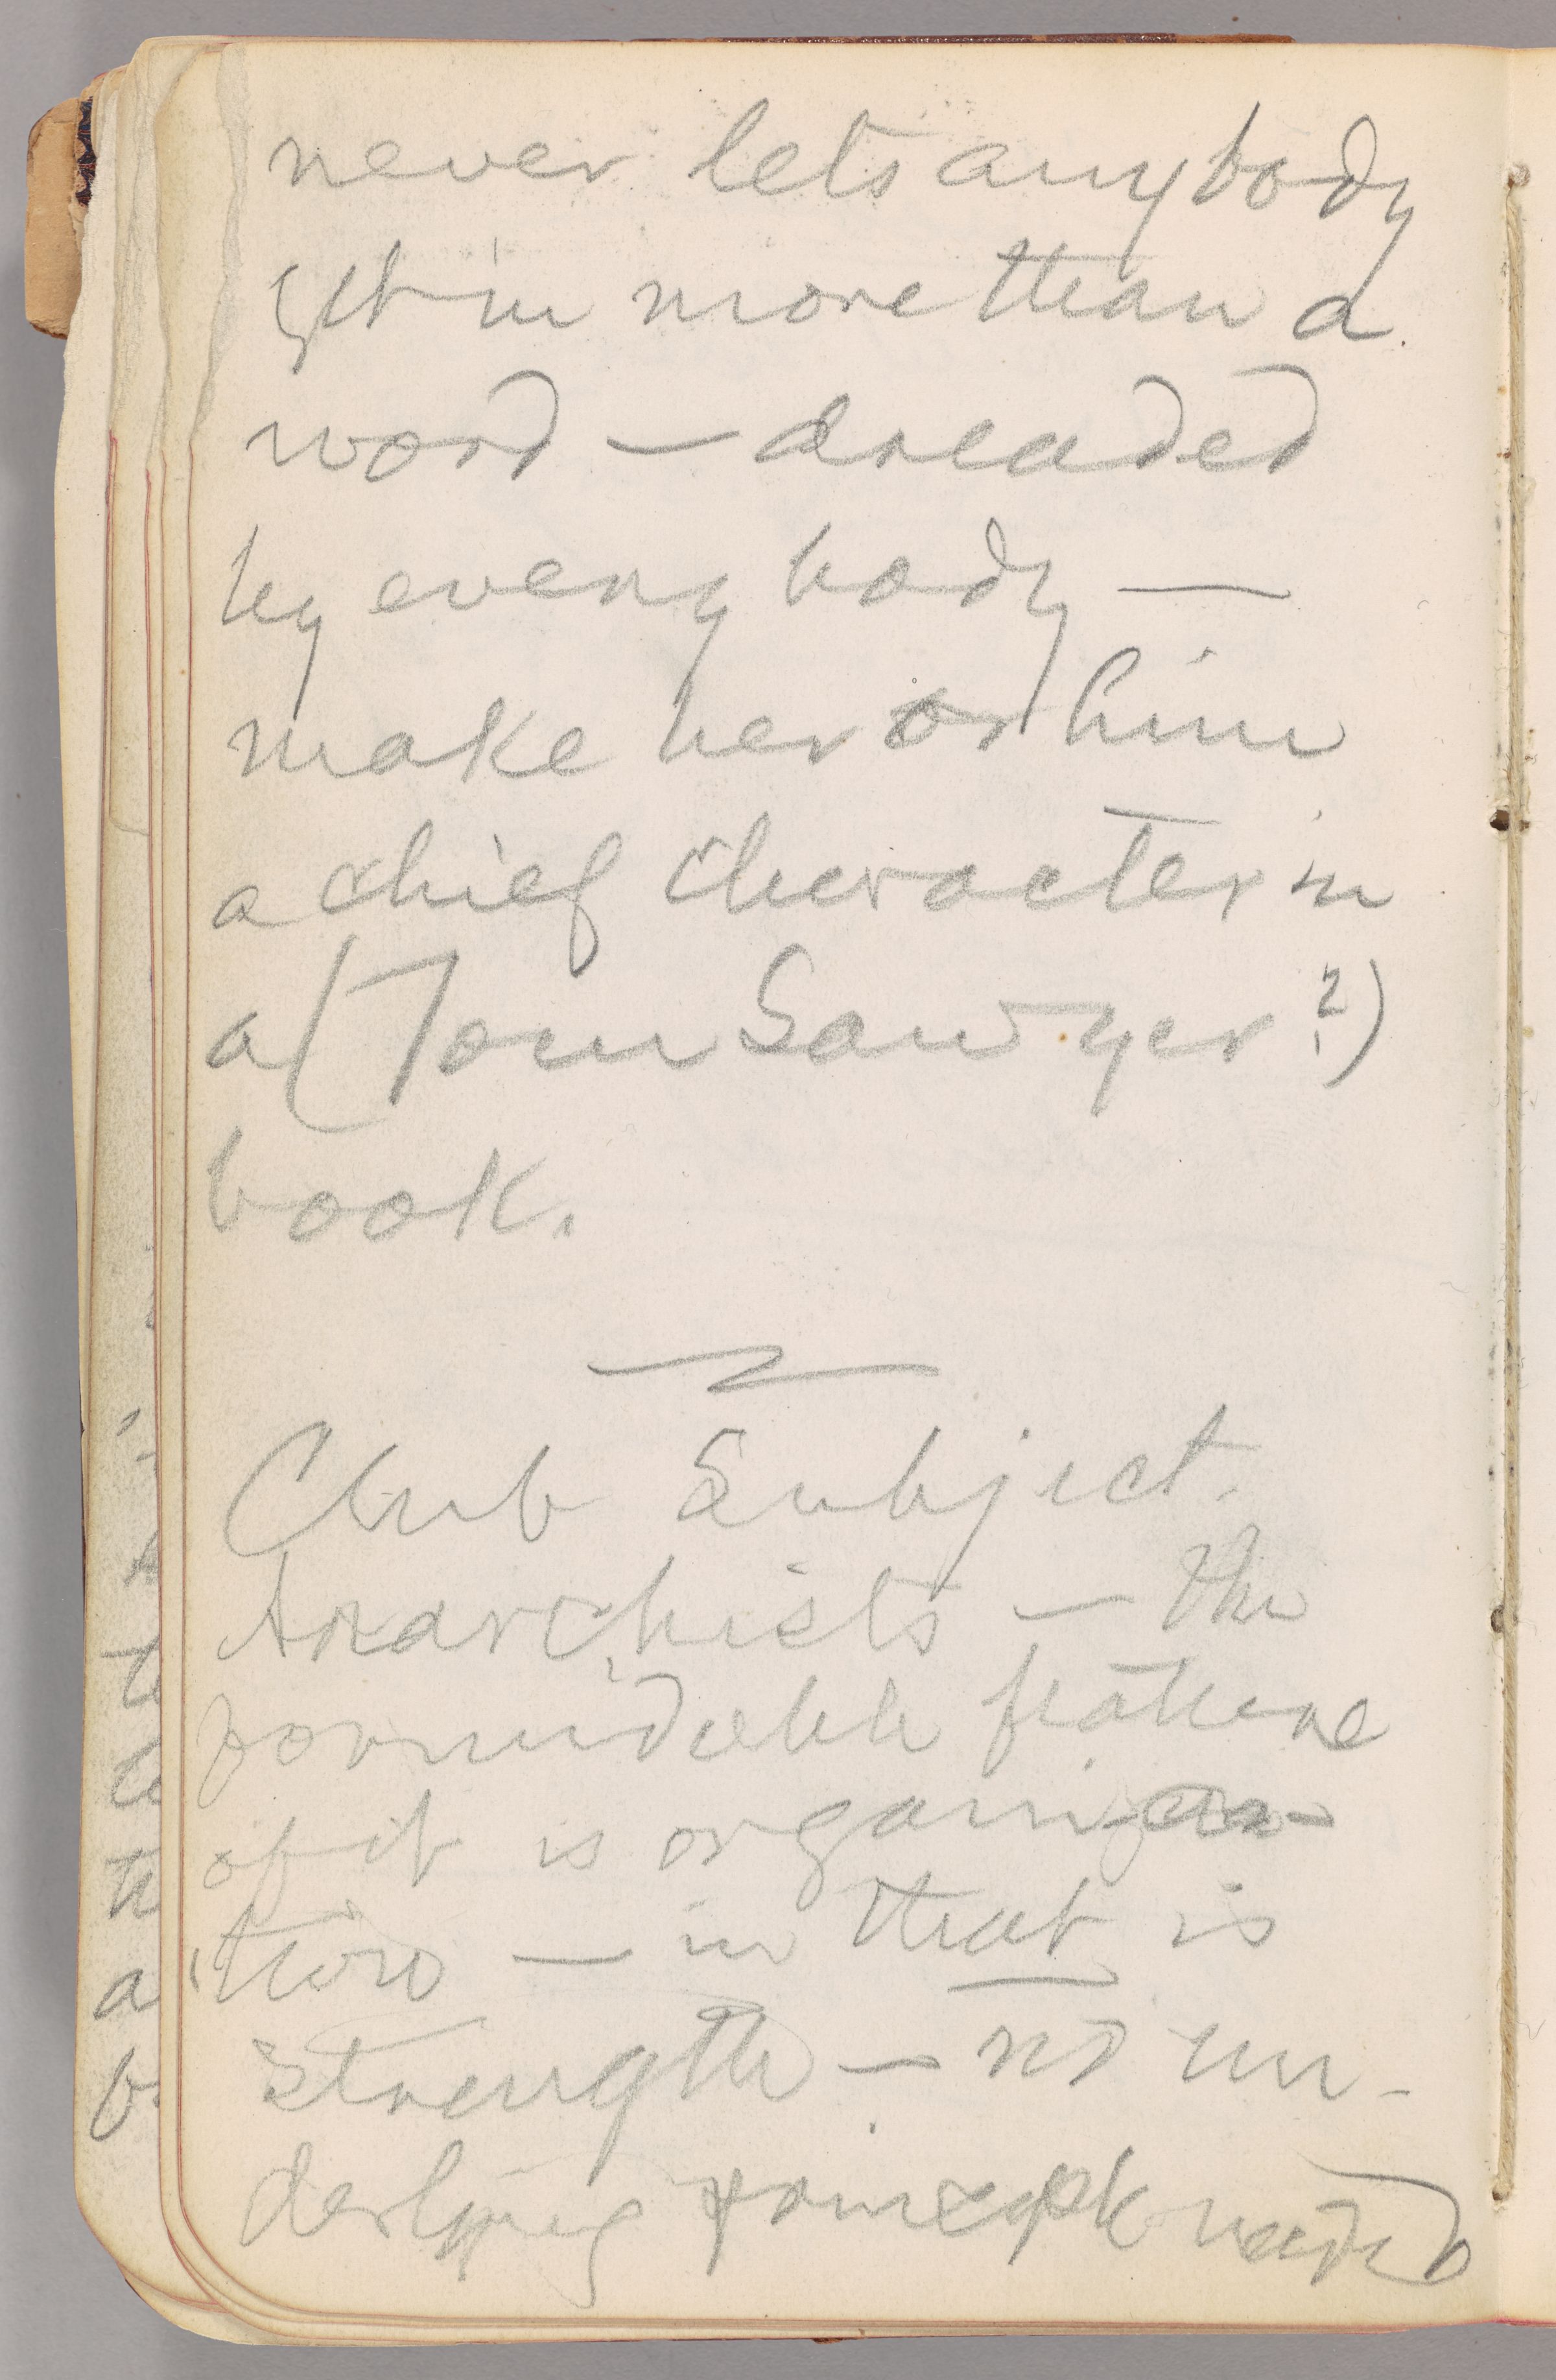 never lets anybody
get in more than a
word — dreaded
by everybody —
make her or him
a chief character in
a (Tom Sawyer?)
book.
Club Subject.
Anarchists — the
formidable feature
of it is organiza-
tion — in that is
strength — no un-
derlying principle needed